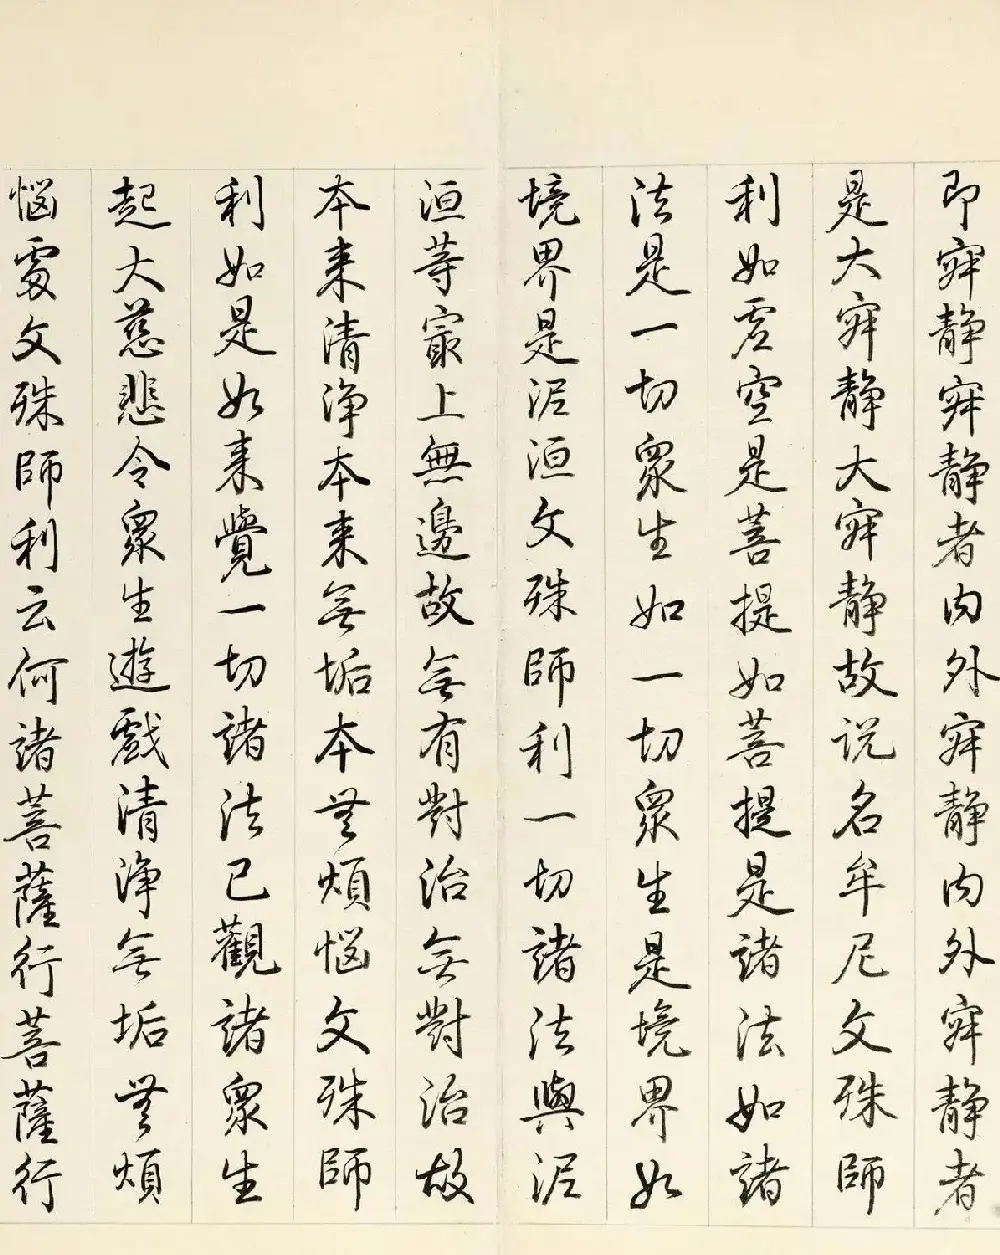 即寂静寂静者内外寂静内外寂静者
是大寂静大寂静故说名牟尼文殊師
利如虛空是菩提如菩提是諸法如諸
法是一切衆生如一切衆生是境界如
境界是泥洹文殊師利一切諸法與泥
洹等寂上無邊故无有對治无對治故
本来清淨本来无垢本無煩惱文殊師
利如是如来覺一切諸法已觀諸衆生
起大慈悲令衆生遊戲清淨无垢無煩
惱處文殊師利云何諸菩薩行菩薩行